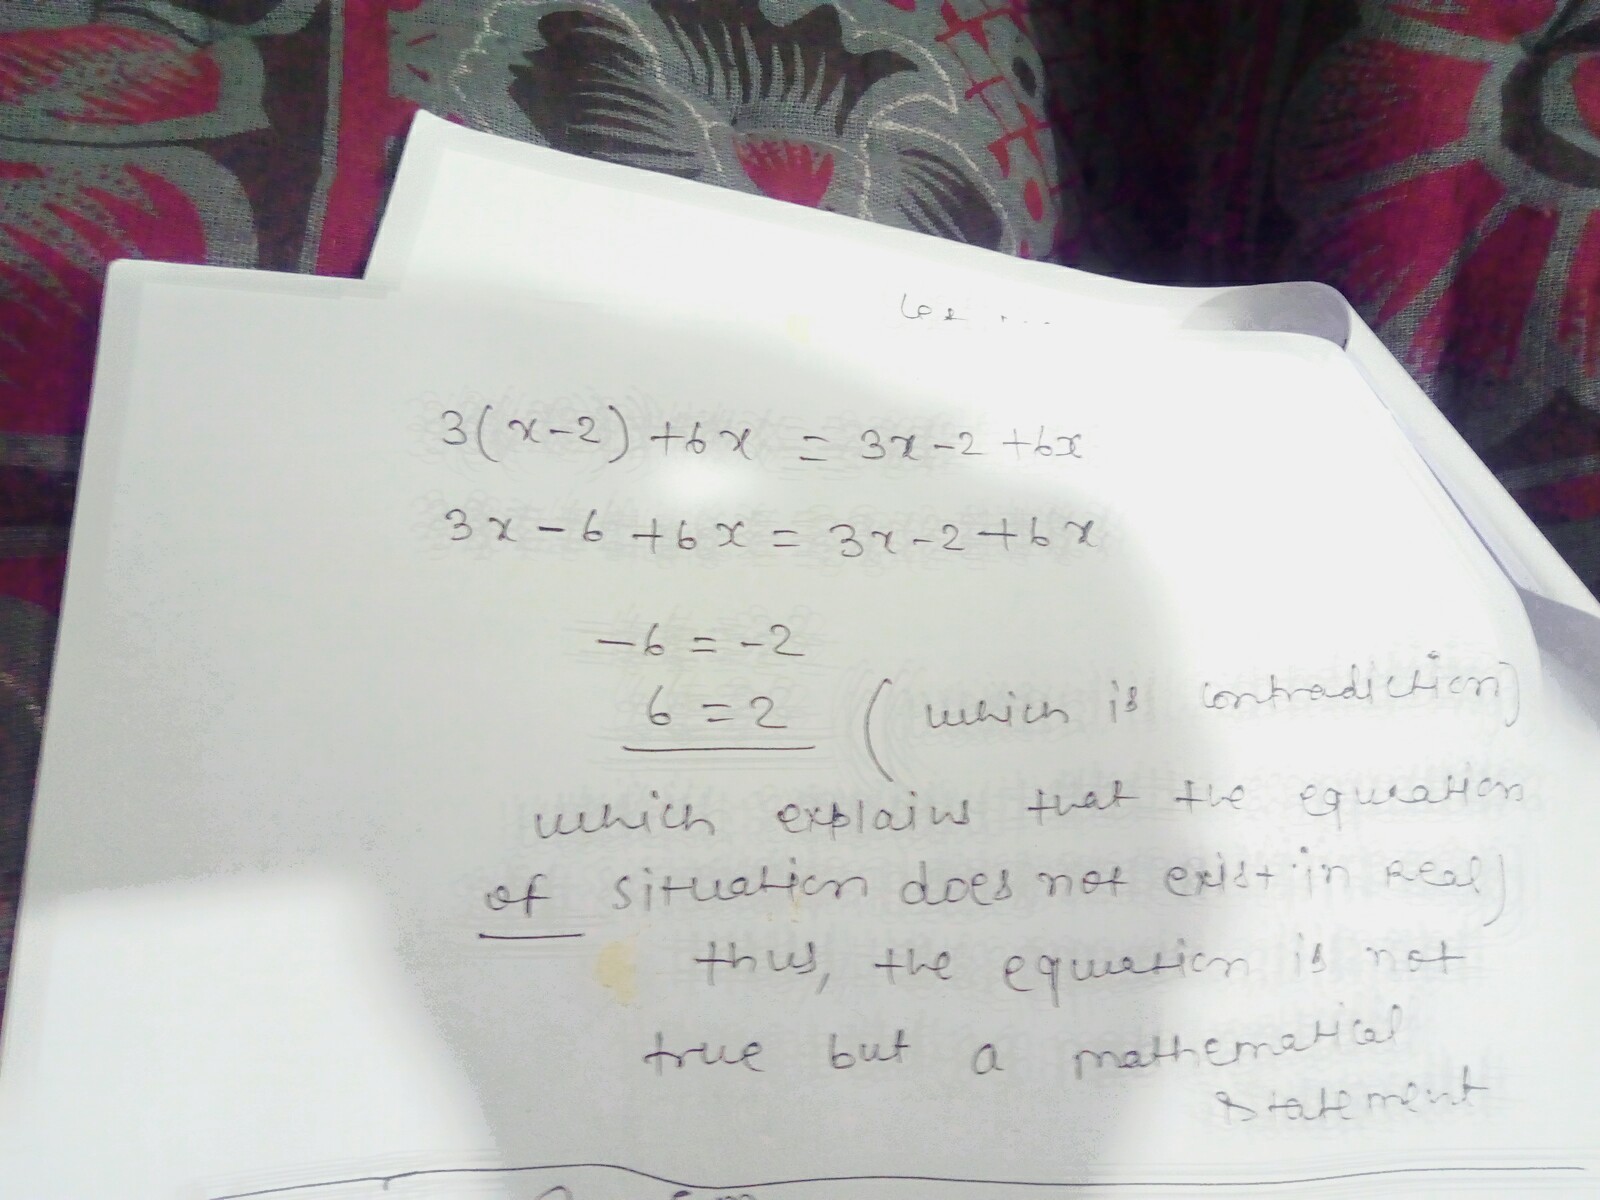 3(x-2) +6x = 3x-2 +6x
3x - 6 +6x = 3x-2+6x
-6 = -2
6 = 2 (which is contradiction)
which explains that the equation
of situation does not exist in Real)
thus, the equation is not
true but a mathematical
statement